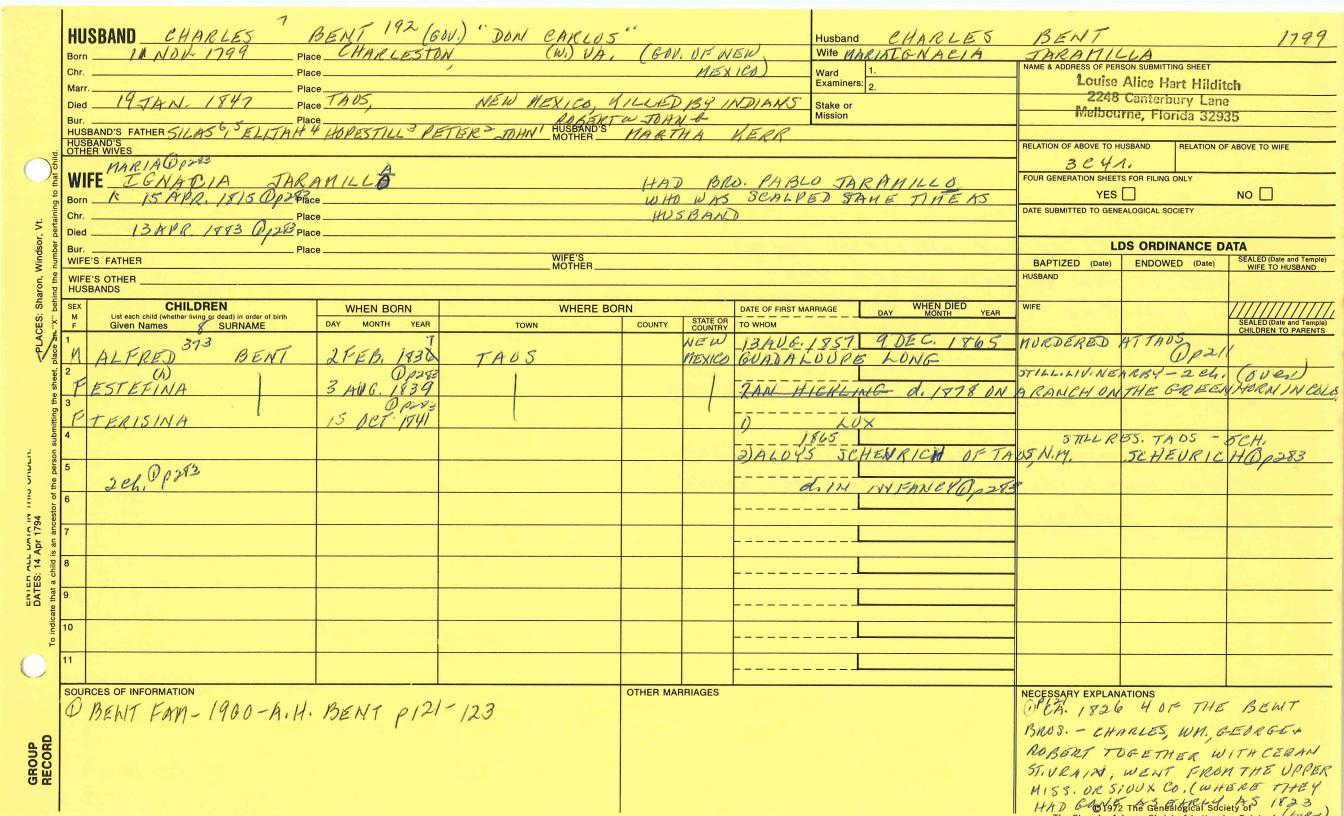 HUSBAND CHARLES 7 BENT 192 (GOV.) "DON CARLOS"
Born 11 NOV. 1799 Place CHARLESTON (W.) VA. (GOV. OF NEW
Chr. Place MEXICO)
Marr. Place
Died 19 JAN. 1847 Place TAOS, NEW MEXICO, KILLED BY INDIANS
Bur. Place ROBERT W JOHN &
HUSBAND'S FATHER SILAS 6, 5 ELIJAH 4 HOPESTILL 3 PETER 2 JOHN 1 HUSBAND'S MOTHER MARTHA KERR
HUSBAND'S OTHER WIVES
Husband CHARLES BENT 1799
Wife MARIA IGNACIA JARAMILLA
Ward Examiners: 1.
2.
Stake or Mission
NAME & ADDRESS OF PERSON SUBMITTING SHEET
Louise Alice Hart Hilditch
2248 Canterbury Lane
Melbourne, Florida 32935
RELATION OF ABOVE TO HUSBAND RELATION OF ABOVE TO WIFE
3C4R.
FOUR GENERATION SHEETS FOR FILING ONLY
YES NO
DATE SUBMITTED TO GENEALOGICAL SOCIETY
MARIA ① p283
WIFE IGNACIA JARAMILLO A HAD BRO. PABLO JARAMILLO
Born 15 APR. 1815 ① p283 Place WHO WAS SCALPED SAME TIME AS
Chr. Place HUSBAND
Died 13 APR. 1883 ① p283 Place
Bur. Place
WIFE'S FATHER WIFE'S MOTHER
WIFE'S OTHER HUSBANDS
LDS ORDINANCE DATA
BAPTIZED (Date) ENDOWED (Date) SEALED (Date and Temple) WIFE TO HUSBAND
HUSBAND
WIFE
SEALED (Date and Temple) CHILDREN TO PARENTS
SEX M F CHILDREN WHEN BORN WHERE BORN DATE OF FIRST MARRIAGE WHEN DIED
List each child (whether living or dead) in order of birth
Given Names 8 SURNAME DAY MONTH YEAR TOWN COUNTY STATE OR COUNTRY TO WHOM DAY MONTH YEAR
1 373 7 NEW 13 AUG. 1857 9 DEC. 1865 MURDERED AT TAOS
M ALFRED BENT 2 FEB. 1836 TAOS MEXICO GUADALOUPE LONG ① p211
2 (h) ① p283 STILL LIV. NEARBY - 2 ch. (over)
F ESTEFINA 3 AUG. 1839 ZAN HICKLING d. 1878 ON A RANCH ON THE GREENHORN IN COLO.
3 ① p283
F TERISINA 15 OCT 1841 1) LUX
4 1865 STILL RES. TAOS - 5CH.
2) ALOYS SCHENRICH OF TAOS, N.M. SCHEURICH ① p283
5 2 ch. ① p283 d. IN INFANCY ① p283
6
7
8
9
10
11
SOURCES OF INFORMATION
① BENT FAM - 1900 - A.H. BENT p121-123
OTHER MARRIAGES
NECESSARY EXPLANATIONS
① p121 CA. 1826 4 OF THE BENT
BROS. - CHARLES, WM, GEORGE &
ROBERT TOGETHER WITH CERAN
ST. VRAIN, WENT FROM THE UPPER
MISS. OR SIOUX CO. (WHERE THEY
HAD GONE AS EARLY AS 1823
© 1972 The Genealogical Society of
(over)
ENTER ALL DATA IN THIS ORDER:
DATES: 14 Apr 1794
PLACES: Sharon, Windsor, Vt.
To indicate that a child is an ancestor of the person submitting the sheet, place an "X" behind the number pertaining to that child.
GROUP
RECORD